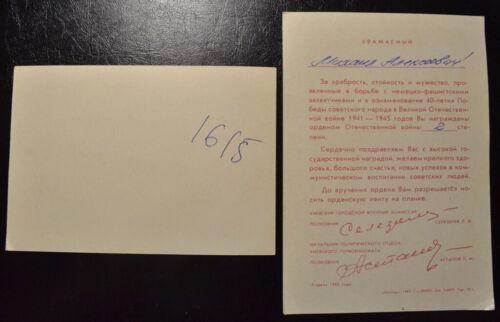 16/5
УВАЖАЕМЫЙ
Михаил Алексеевич!
За храбрость, стойкость и мужество, про-
явленные в борьбе с немецко-фашистскими
захватчиками и в ознаменование 40-летия По-
беды советского народа в Великой Отечествен-
ной войне 1941—1945 годов Вы награждены
орденом Отечественной войны 2 сте-
пени.
Сердечно поздравляем Вас с высокой го-
сударственной наградой, желаем крепкого здо-
ровья, большого счастья, новых успехов в ком-
мунистическом воспитании советских людей.
До вручения ордена Вам разрешается но-
сить орденскую ленту на планке.
КИЕВСКИЙ ГОРОДСКОЙ ВОЕННЫЙ КОМИССАР
ПОЛКОВНИК
НАЧАЛЬНИК ПОЛИТИЧЕСКОГО ОТДЕЛА
КИЕВСКОГО ГОРВОЕНКОМАТА
ПОЛКОВНИК